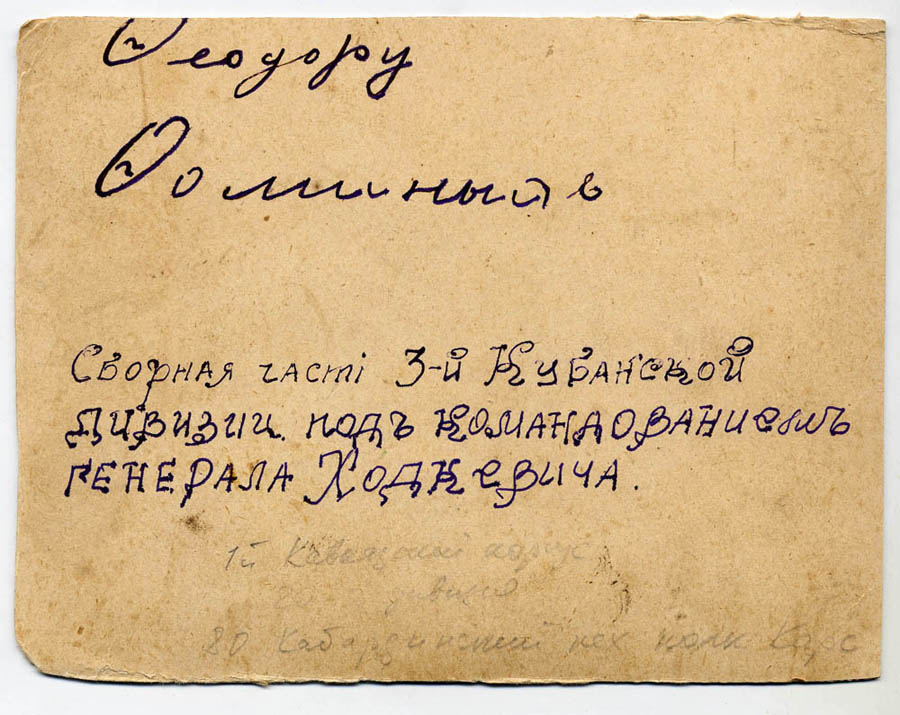 Ѳеодору
Ѳоминыхъ
Сворная часті 3-й Кубанской
дивизии. подъ командованиемъ
генерала Ходкевича.
1й Кавказский корпус
дивизия
80 Кабардинский пех полк Карс